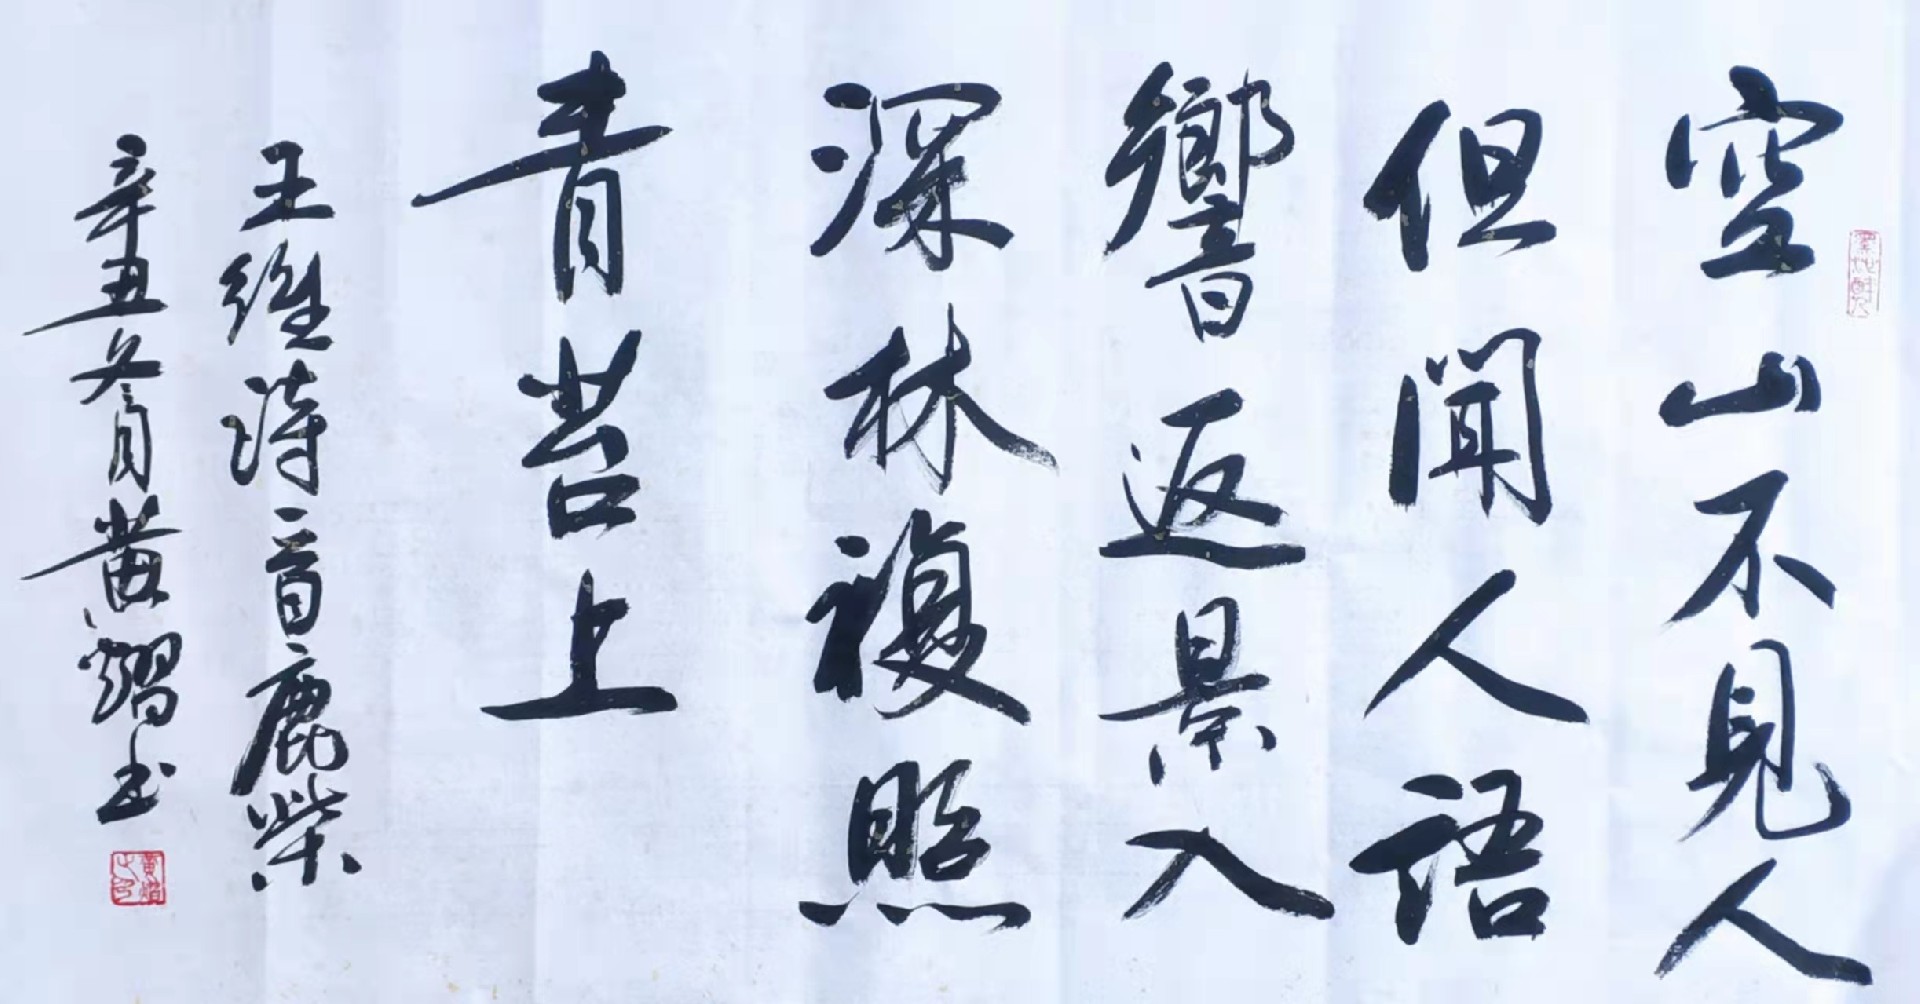 空山不見人
但聞人語
響返景入
深林複照
青苔上
王維詩一首鹿柴
辛丑冬月黄熠书